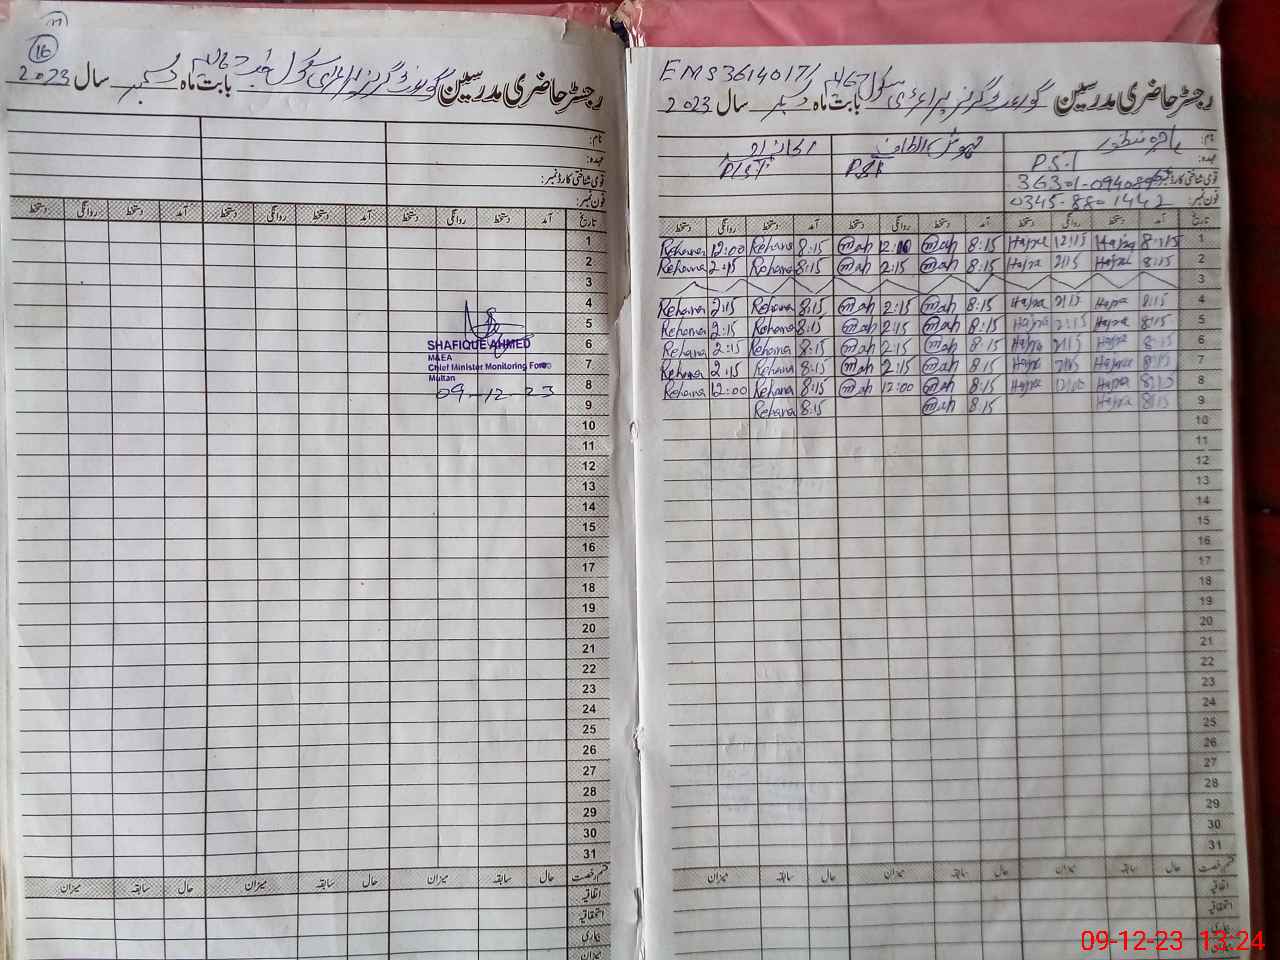 16
رجسٹر حاضری مدرسین گورنمنٹ گرلز پرائمری سکول بابت ماہ دسمبر سال 2023
نام:
عہدہ:
قومی شناختی کارڈ نمبر:
فون نمبر:
تاریخ آمد دستخط روانگی دستخط آمد دستخط روانگی دستخط آمد دستخط روانگی دستخط
1
2
3
4
5
6
7
8
9
10
11
12
13
14
15
16
17
18
19
20
21
22
23
24
25
26
27
28
29
30
31
SHAFIQUE AHMED
M&EA
Chief Minister Monitoring Force
Multan
09-12-23
قسم رخصت حال سابقہ میزان حال سابقہ میزان حال سابقہ میزان
اتفاقیہ
استحقاقیہ
بیماری
میزان
EMS3614017/
رجسٹر حاضری مدرسین گورنمنٹ گرلز پرائمری سکول بابت ماہ دسمبر سال 2023
نام: ہاجرہ منظور مہوش الطاف
عہدہ: P.S.T P.S.T P.S.T
قومی شناختی کارڈ
فون نمبر: 0345-8801442
تاریخ آمد دستخط روانگی دستخط آمد دستخط روانگی دستخط آمد دستخط روانگی دستخط
1 8:15 Hajra 12:15 Hajra 8:15 Mah Mah 8:15 Rehana 12:00 Rehana
2 8:15 Hajra 2:15 Hajra 8:15 Mah 2:15 Mah 8:15 Rehana 2:15 Rehana
3
4 8:15 Hajra 2:15 Hajra 8:15 Mah 2:15 Mah 8:15 Rehana 2:15 Rehana
5 8:15 Hajra 2:15 Hajra 8:15 Mah 2:15 Mah 8:15 Rehana 2:15 Rehana
6 8:15 Hajra 2:15 Hajra 8:15 Mah 2:15 Mah 8:15 Rehana 2:15 Rehana
7 8:15 Hajra 2:15 Hajra 8:15 Mah 2:15 Mah 8:15 Rehana 2:15 Rehana
8 8:15 Hajra 12:00 Hajra 8:15 Mah 12:00 Mah 8:15 Rehana 12:00 Rehana
9 8:15 Hajra 8:15 Mah 8:15 Rehana
10
11
12
13
14
15
16
17
18
19
20
21
22
23
24
25
26
27
28
29
30
31
قسم رخصت حال سابقہ میزان حال سابقہ میزان حال سابقہ میزان
اتفاقیہ
استحقاقیہ
بیماری
09-12-23 13:24